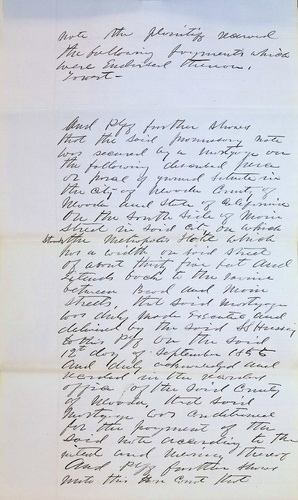 note the plaintiff received
the following payments which
were Endorsed thereon.
Towit -
And Plff further shows
that the said promissory note
was secured by a mortgage on
the following described piece
or parcel of ground situate in
the City of County of
and State of California
On the South side of Main
street in said City, on which
Stands the Metropolis Hotel which
has a width on said street
of about thirty five feet And
Extends back to the
between and Main
streets, that said mortgage
was duly made Executed and
delivered by the said
to this Plff on the said
12th day of September
And duly acknowledged and
recorded in the recorders
office of the said County
of that said
Mortgage was Conditioned
for the payment of the
said note according to the
intent and meaning thereof
And Plff further shows
unto this Hon Court that